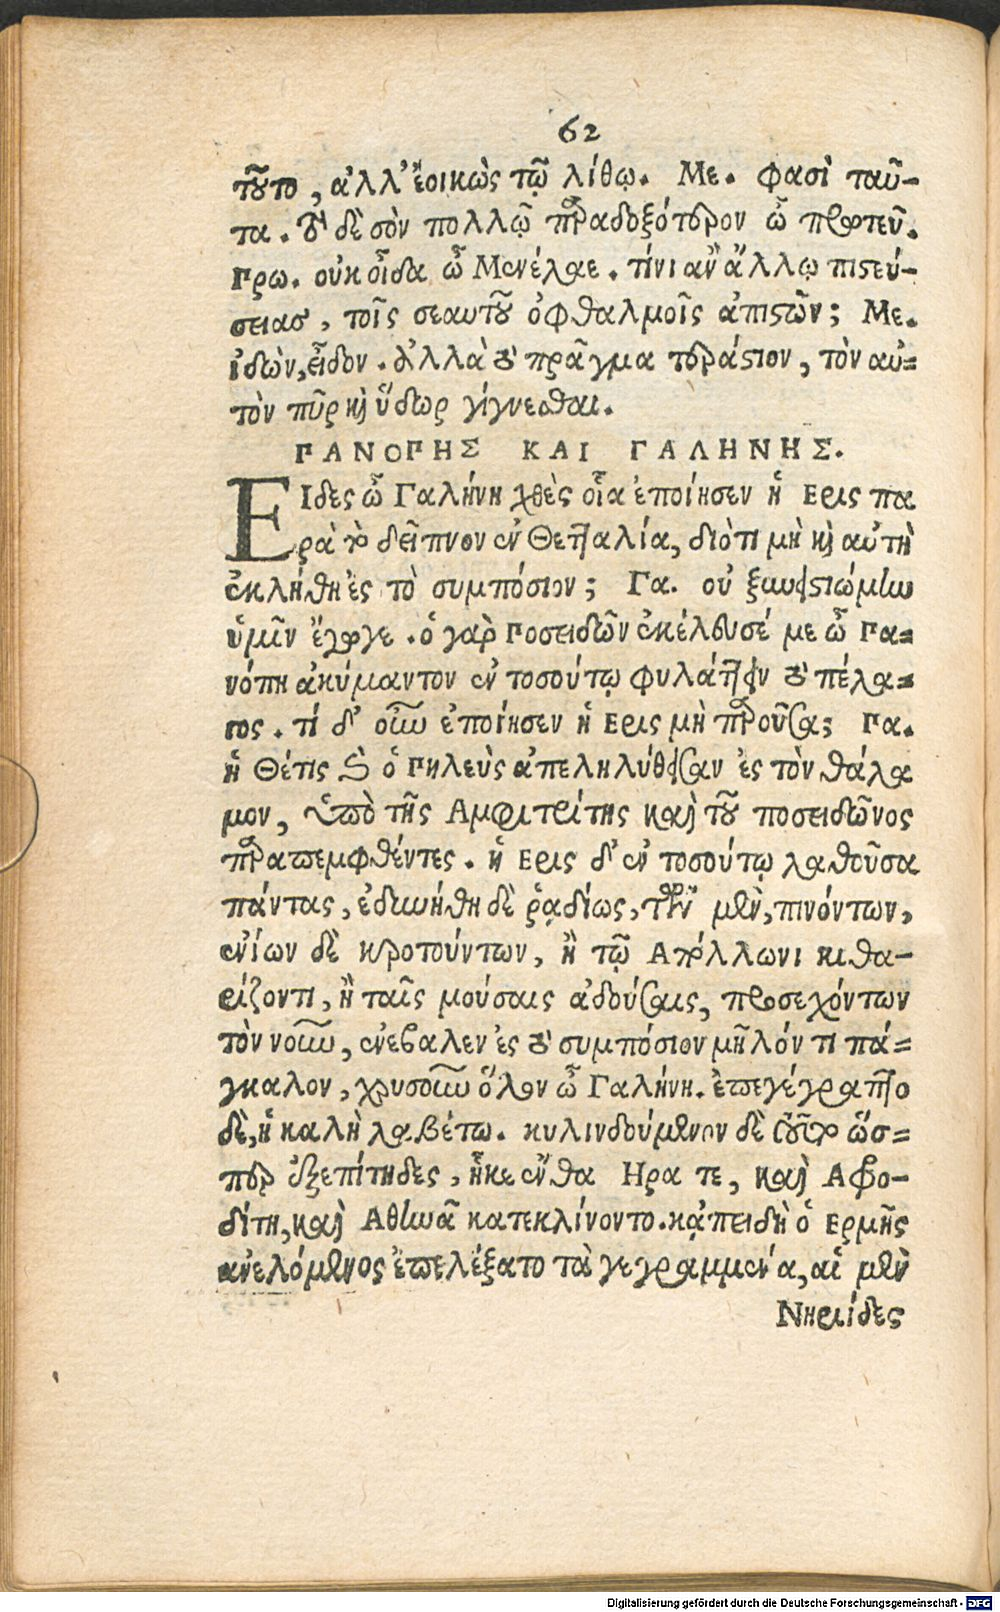 62
τοῦτο, ἀλλ' ἐοικὼς τῷ λίθῳ. Με. φασὶ ταῦ-
τα. τὸ δὲ σὸν πολλῷ παραδοξότερον ὦ πρωτεῦ.
Πρω. οὐκ οἶδα ὦ Μενέλαε. τίνι ἂν ἄλλῳ πιστεύ-
σειας, τοῖς σεαυτοῦ ὀφθαλμοῖς ἀπιστῶν; Με.
ἰδὼν, εἶδον. ἀλλὰ τὸ πρᾶγμα τεράστιον, τὸν αὐ-
τὸν πῦρ καὶ ὕδωρ γίγνεσθαι.
ΠΑΝΟΠΗΣ ΚΑΙ ΓΑΛΗΝΗΣ.
ΕΙδες ὦ Γαλήνη χθὲς οἷα ἐποίησεν ἡ Ερις πα
ρὰ τὸ δεῖπνον ἐν Θετταλίᾳ, διότι μὴ καὶ αὐτὴ
ἐκλήθη ἐς τὸ συμπόσιον; Γα. οὐ ξυνειστιώμην
ὑμῖν ἔγωγε. ὁ γὰρ Ποσειδῶν ἐκέλευσέ με ὦ Πα-
νόπη ἀκύμαντον ἐν τοσούτῳ φυλάττειν τὸ πέλα-
γος. τί δ' οὖν ἐποίησεν ἡ Ερις μὴ παροῦσα; Πα.
ἡ Θέτις καὶ ὁ Πηλεὺς ἀπεληλύθεισαν ἐς τὸν θάλα
μον, ὑπὸ τῆς Αμφιτρίτης καὶ τοῦ ποσειδῶνος
παραπεμφθέντες. ἡ Ερις δ' ἐν τοσούτῳ λαθοῦσα
πάντας, ἐδυνήθη δὲ ῥᾳδίως, τῶν μὲν, πινόντων,
ἐνίων δὲ κροτούντων, ἢ τῷ Απόλλωνι κιθα-
ρίζοντι, ἢ ταῖς μούσαις ᾀδούσαις, προσεχόντων
τὸν νοῦν, ἐνέβαλεν ἐς τὸ συμπόσιον μῆλόν τι πά-
γκαλον, χρυσοῦν ὅλον ὦ Γαλήνη. ἐπεγέγραπτο
δὲ, ἡ καλὴ λαβέτω. κυλινδούμενον δὲ τοῦτο ὥσ-
περ ἐξεπίτηδες, ἧκε ἔνθα Ηρα τε, καὶ Αφρο-
δίτη, καὶ Αθηνᾶ κατεκλίνοντο. κᾀπειδὴ ὁ Ερμῆς
ἀνελόμενος ἐπελέξατο τὰ γεγραμμένα, αἱ μὲν
Νηρηίδες
Digitalisierung gefördert durch die Deutsche Forschungsgemeinschaft - DFG